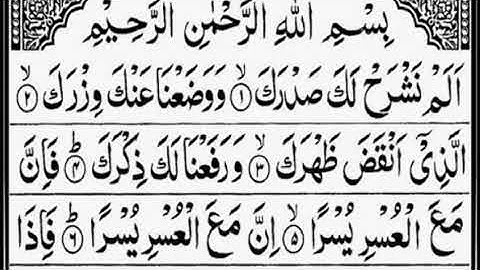 بِسْمِ اللهِ الرَّحْمٰنِ الرَّحِيْمِ
اَلَمْ نَشْرَحْ لَكَ صَدْرَكَ ۙ﴿۱﴾ وَوَضَعْنَا عَنْكَ وِزْرَكَ ۙ﴿۲﴾
الَّذِيْۤ اَنْقَضَ ظَهْرَكَ ۙ﴿۳﴾ وَرَفَعْنَا لَكَ ذِكْرَكَ ؕ﴿۴﴾ فَاِنَّ
مَعَ الْعُسْرِ يُسْرًا ۙ﴿۵﴾ اِنَّ مَعَ الْعُسْرِ يُسْرًا ؕ﴿۶﴾ فَاِذَا